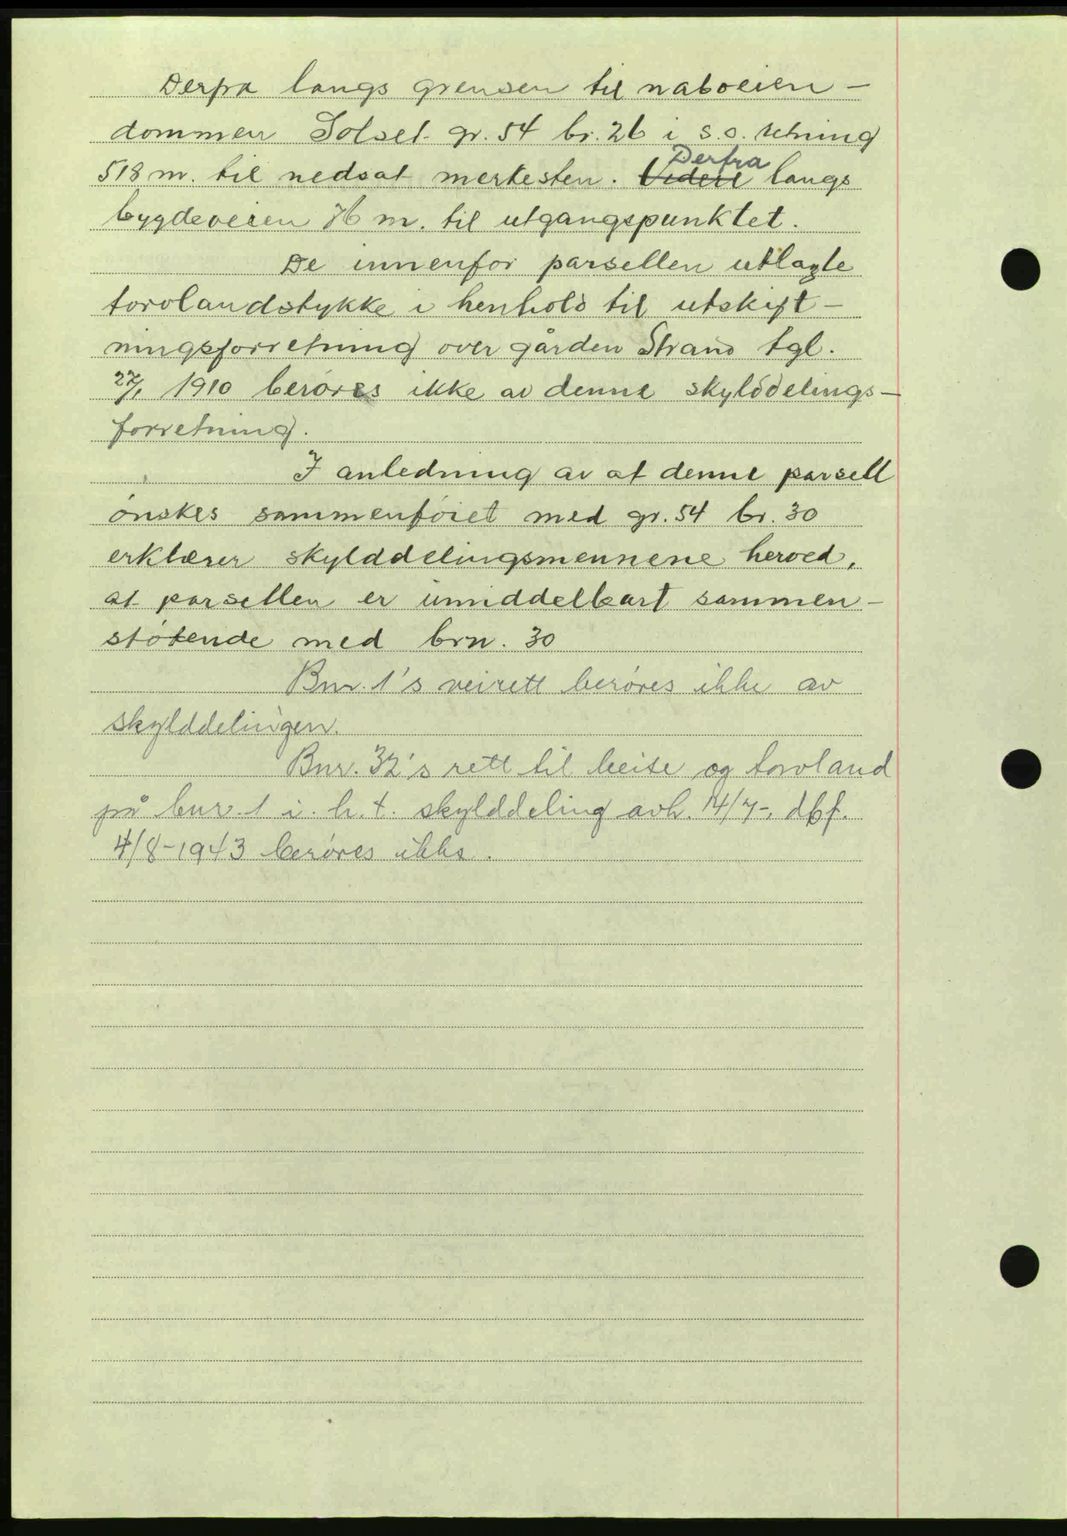 Derfra langs grensen til naboeien-
dommen Solset gr. 54 br. 26 i s.o. retning
518 m. til nedsat merkesten. Videre Derfra langs
bygdeveien 76 m. til utgangspunktet.
De innenfor parsellen utlagte
torvlandstykke i henhold til utskift-
ningsforretning over gården Strand tgl.
27/1 1910 berøres ikke av denne skylddelings-
forretning.
I anledning av at denne parsell
ønskes sammenføiet med gr. 54 br. 30
erklærer skylddelingsmennene herved,
at parsellen er umiddelbart sammen-
støtende med brn. 30
Bnr. 1's veirett berøres ikke av
skylddelingen.
Bnr. 32's rett til beite og torvland
på bnr. 1 i. h. t. skylddeling avh. 14/7-, dbf.
4/8-1943 berøres ikke.